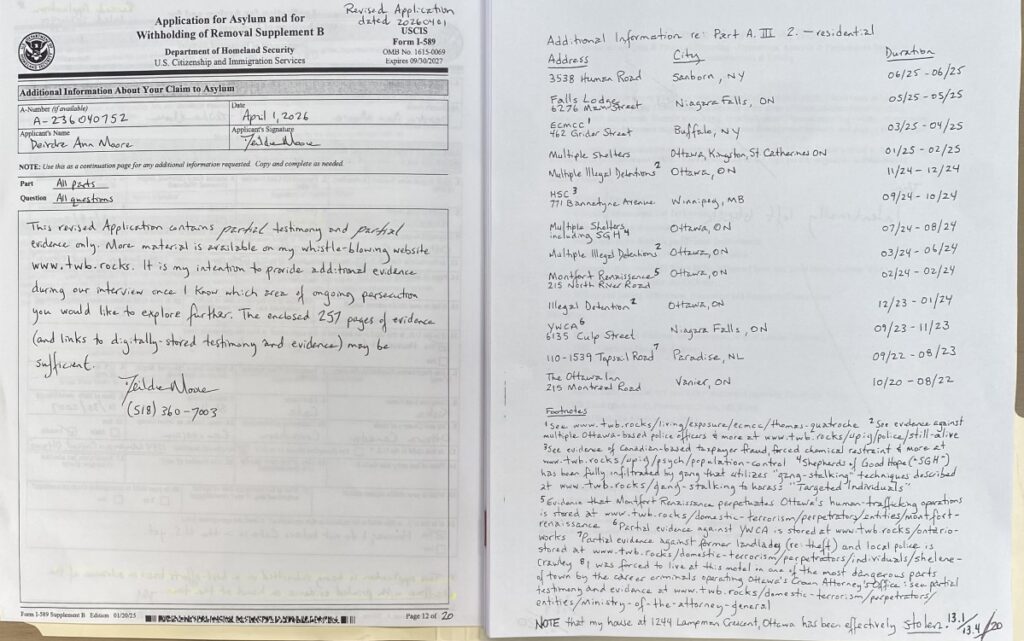 Revised Application
dated 20260401
Application for Asylum and for
Withholding of Removal Supplement B
Department of Homeland Security
U.S. Citizenship and Immigration Services
USCIS
Form I-589
OMB No. 1615-0069
Expires 09/30/2027
Additional Information About Your Claim to Asylum
A-Number (if available)
A-236040752
Date
April 1, 2026
Applicant's Name
Deirdre Ann Moore
Applicant's Signature
Deirdre Moore
NOTE: Use this as a continuation page for any additional information requested. Copy and complete as needed.
Part All parts
Question All questions
This revised Application contains partial testimony and partial
evidence only. More material is available on my whistle-blowing website
www.twb.rocks. It is my intention to provide additional evidence
during our interview once I know which area of ongoing persecution
you would like to explore further. The enclosed 257 pages of evidence
(and links to digitally-stored testimony and evidence) may be
sufficient.
Deirdre Moore
(518) 360-7003
Form I-589 Supplement B Edition 01/20/25
Page 12 of 20
Additional Information re: Part A.III 2. - residential
Address City Duration
3538 Human Road Sanborn, NY 06/25 - 06/25
Falls Lodge
6276 Main Street Niagara Falls, ON 05/25 - 05/25
ECMCC 1
462 Grider Street Buffalo, NY 03/25 - 04/25
Multiple Shelters Ottawa, Kingston, St Catherines ON 01/25 - 02/25
Multiple Illegal Detentions 2 Ottawa, ON 11/24 - 12/24
HSC 3
771 Bannatyne Avenue Winnipeg, MB 09/24 - 10/24
Multiple Shelters,
including SGH 4 Ottawa, ON 07/24 - 08/24
Multiple Illegal Detentions 2 Ottawa, ON 03/24 - 06/24
Montfort Renaissance 5 Ottawa, ON 02/24 - 02/24
215 North River Road
Illegal Detention 2 Ottawa, ON 12/23 - 01/24
YWCA 6
6135 Culp Street Niagara Falls, ON 09/23 - 11/23
110-1539 Topsail Road 7 Paradise, NL 09/22 - 08/23
The Ottawa Inn
215 Montreal Road Vanier, ON 10/20 - 08/22
Footnotes
1 See www.twb.rocks/living/exposure/ecmcc/thomas-quatroche 2 See evidence against
multiple Ottawa-based police officers & more at www.twb.rocks/upig/police/still-alive
3 See evidence of Canadian-based taxpayer fraud, forced chemical restraint & more at
www.twb.rocks/upig/psych/population-control 4 Shepherds of Good Hope ("SGH")
has been fully infiltrated by gang that utilizes "gang-stalking" techniques described
at www.twb.rocks/gang-stalking to harass "Targeted Individuals"
5 Evidence that Montfort Renaissance perpetuates Ottawa's human-trafficking operations
is stored at www.twb.rocks/domestic-terrorism/perpetrators/entities/montfort-
renaissance 6 Partial evidence against YWCA is stored at www.twb.rocks/ontario-
works 7 Partial evidence against former landlady (re: theft) and local police is
stored at www.twb.rocks/domestic-terrorism/perpetrators/individuals/shelene-
Crawley 8 I was forced to live at this motel in one of the most dangerous parts
of town by the career criminals operating Ottawa's Crown Attorney's Office: see partial
testimony and evidence at www.twb.rocks/domestic-terrorism/perpetrators/
entities/ministry-of-the-attorney-general
NOTE that my house at 1244 Lampman Crescent, Ottawa has been effectively stolen. 13.1/13.4/20